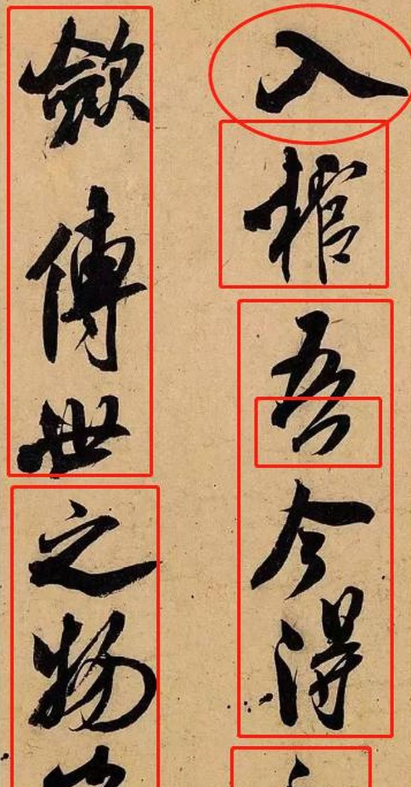 入棺吾今得
歛傳世之物